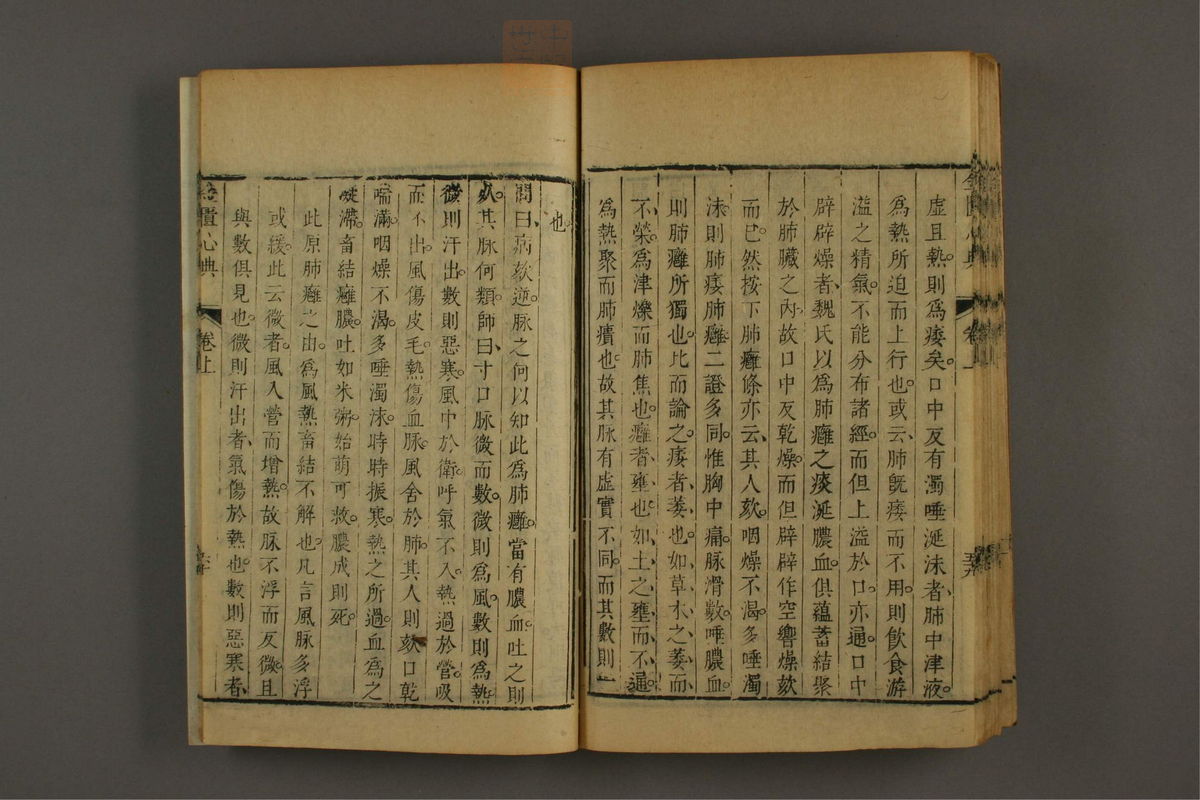 虛且熱則爲痿矣口中反有濁唾涎沫者肺中津液
爲熱所迫而上行也或云肺旣痿而不用則飮食游
溢之精氣不能分布諸經而但上溢於口亦通口中
辟辟燥者魏氏以爲肺癰之痰涎膿血俱蘊蓄結聚
於肺臟之內故口中反乾燥而但辟辟作空響燥欬
而已然按下肺癰條亦云其人欬咽燥不渴多唾濁
沫則肺痿肺癰二證多同惟胸中痛脉滑數唾膿血
則肺癰所獨也比而論之痿者萎也如草木之萎而
不榮爲津爍而肺焦也癰者壅也如土之壅而不通
爲熱聚而肺㿉也故其脉有虛實不同而其數則一
也
問曰病欬逆脉之何以知此爲肺癰當有膿血吐之則
死其脉何類師曰寸口脉微而數微則爲風數則爲熱
微則汗出數則惡寒風中於衛呼氣不入熱過於營吸
而不出風傷皮毛熱傷血脉風舍於肺其人則欬口乾
喘滿咽燥不渴多唾濁沫時時振寒熱之所過血爲之
凝滯畜結癰膿吐如米粥始萌可救膿成則死
此原肺癰之由爲風熱畜結不解也凡言風脉多浮
或緩此云微者風入營而增熱故脉不浮而反微且
與數俱見也微則汗出者氣傷於熱也數則惡寒者
金匱心典
卷上